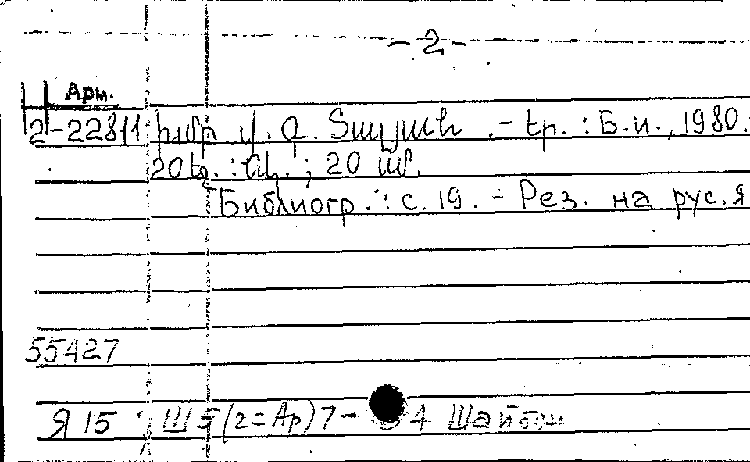 - 2 -
Арм.
2-22811 խմբ. Վ. Գ. Տալյան. - Եր. : Б.и., 1980.
20 էջ : նկ. ; 20 սմ.
Библиогр.: с. 19. - Рез. на рус. я
55427
Я 15 Ш5(2=Ар)7- 4